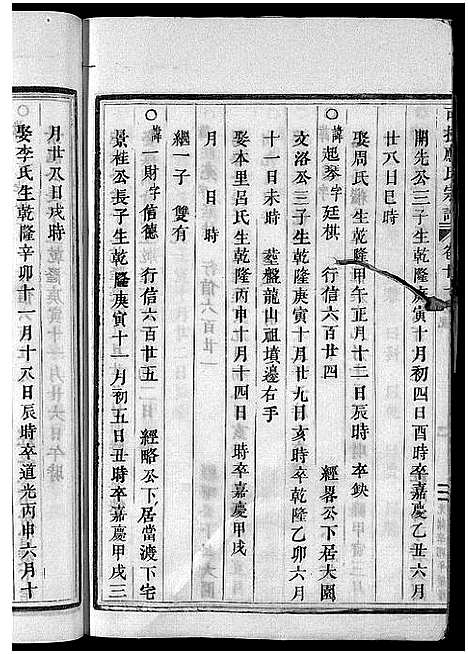 氏宗譜 卷廿
開先公三子生乾隆庚寅十月初四日酉時卒嘉慶乙丑六月
廿八日巳時
娶周氏生乾隆甲午正月十二日辰時卒缺
○諱起琴字廷棋 行信六百廿四 經畧公下居大園
文洛公三子生乾隆庚寅十月廿九日亥時卒乾隆乙卯六月
十一日未時 塟盤龍山祖墳邊右手
娶本里呂氏生乾隆丙申十月十四日時卒嘉慶甲戌
月 日 時
繼一子 雙有
○諱一財字信德 行信六百廿五 經略公下居當渡下宅
景桂公長子生乾隆庚寅十一月初五日丑時卒嘉慶甲戌三
月廿八日戌時
娶李氏生乾隆辛卯十一月十八日辰時卒道光丙申六月十